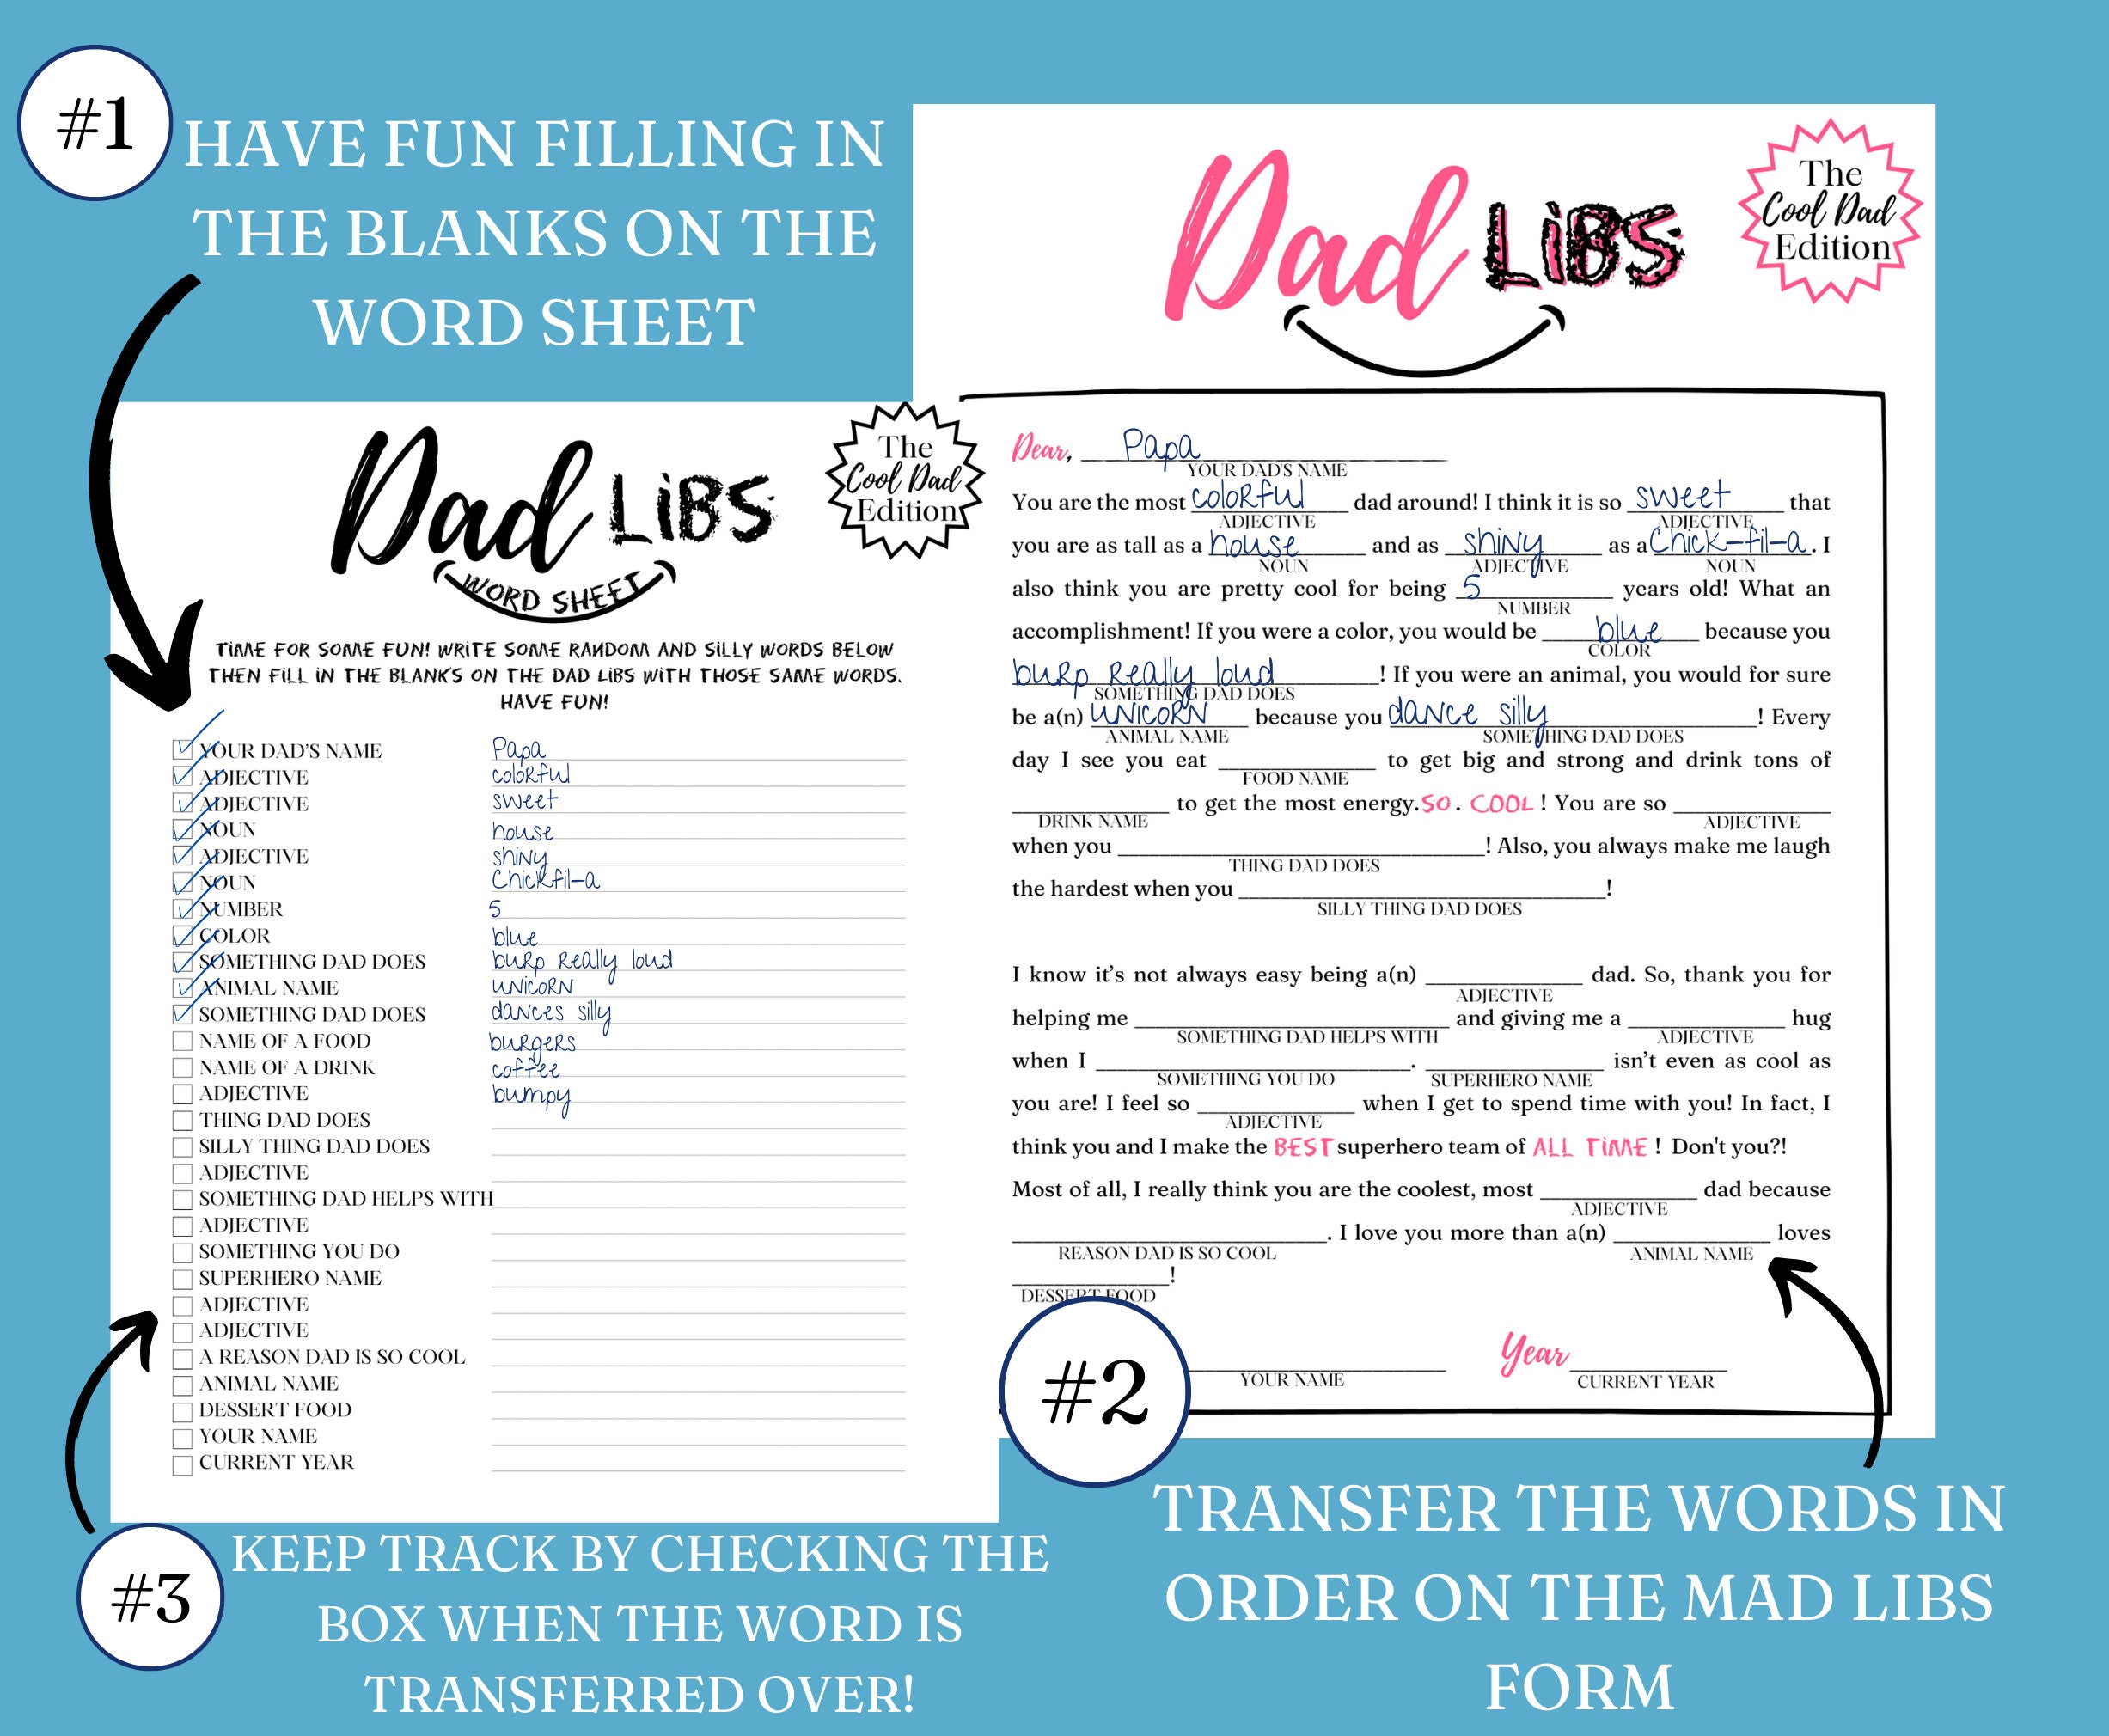 #1
HAVE FUN FILLING IN
THE BLANKS ON THE
WORD SHEET
Dad LiBS
WORD SHEET
The
Cool Dad
Edition
TIME FOR SOME FUN! WRITE SOME RANDOM AND SILLY WORDS BELOW
THEN FILL IN THE BLANKS ON THE DAD LIBS WITH THOSE SAME WORDS.
HAVE FUN!
YOUR DAD'S NAME Papa
ADJECTIVE colorful
ADJECTIVE sweet
NOUN house
ADJECTIVE shiny
NOUN Chickfil-a
NUMBER 5
COLOR blue
SOMETHING DAD DOES burp really loud
ANIMAL NAME unicorn
SOMETHING DAD DOES dances silly
NAME OF A FOOD burgers
NAME OF A DRINK coffee
ADJECTIVE bumpy
THING DAD DOES
SILLY THING DAD DOES
ADJECTIVE
SOMETHING DAD HELPS WITH
ADJECTIVE
SOMETHING YOU DO
SUPERHERO NAME
ADJECTIVE
ADJECTIVE
A REASON DAD IS SO COOL
ANIMAL NAME
DESSERT FOOD
YOUR NAME
CURRENT YEAR
#3
KEEP TRACK BY CHECKING THE
BOX WHEN THE WORD IS
TRANSFERRED OVER!
Dad LiBS
The
Cool Dad
Edition
Dear, Papa
YOUR DAD'S NAME
You are the most colorful dad around! I think it is so sweet that
ADJECTIVE ADJECTIVE
you are as tall as a house and as shiny as a Chick-fil-a. I
NOUN ADJECTIVE NOUN
also think you are pretty cool for being 5 years old! What an
NUMBER
accomplishment! If you were a color, you would be blue because you
COLOR
burp really loud! If you were an animal, you would for sure
SOMETHING DAD DOES
be a(n) unicorn because you dance silly! Every
ANIMAL NAME SOMETHING DAD DOES
day I see you eat ____ to get big and strong and drink tons of
FOOD NAME
____ to get the most energy. SO. COOL! You are so ____
DRINK NAME ADJECTIVE
when you ____! Also, you always make me laugh
THING DAD DOES
the hardest when you ____!
SILLY THING DAD DOES
I know it's not always easy being a(n) ____ dad. So, thank you for
ADJECTIVE
helping me ____ and giving me a ____ hug
SOMETHING DAD HELPS WITH ADJECTIVE
when I ____. ____ isn't even as cool as
SOMETHING YOU DO SUPERHERO NAME
you are! I feel so ____ when I get to spend time with you! In fact, I
ADJECTIVE
think you and I make the BEST superhero team of ALL TIME! Don't you?!
Most of all, I really think you are the coolest, most ____ dad because
ADJECTIVE
____. I love you more than a(n) ____ loves
REASON DAD IS SO COOL ANIMAL NAME
____!
DESSERT FOOD
Year
YOUR NAME CURRENT YEAR
#2
TRANSFER THE WORDS IN
ORDER ON THE MAD LIBS
FORM